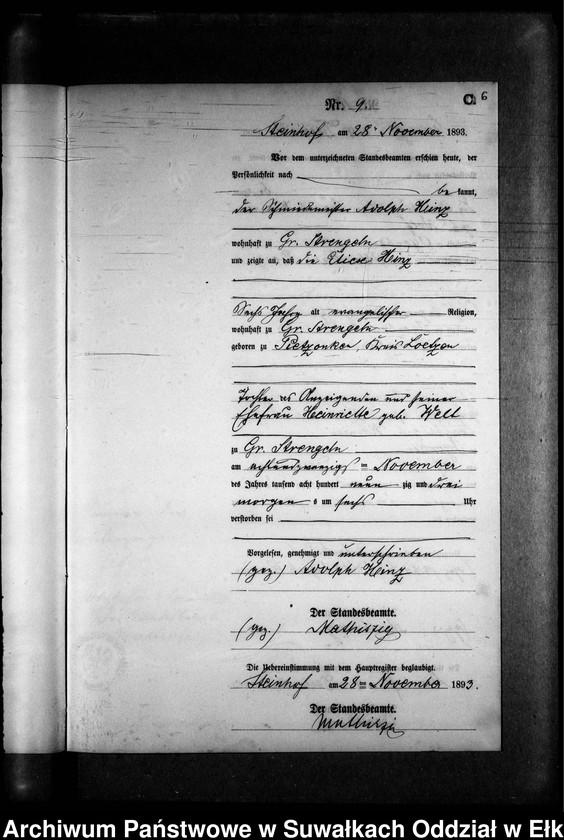 C. 6
Nr. 9.
Steinhof am 28ⁿ November 1893.
Vor dem unterzeichneten Standesbeamten erschien heute, der
Persönlichkeit nach
be kannt,
der Schmiedemeister Adolph Heinz
wohnhaft zu Gr. Strengeln
und zeigte an, daß die Heinz
Sechs Jahre alt evangelischer Religion,
wohnhaft zu Gr. Strengeln
geboren zu Kreis Loetzen
Tochter des Anzeigenden und seiner
Ehefrau Heinriette geb. Welt
zu Gr. Strengeln
am achtundzwanzigsten November
des Jahres tausend acht hundert neun zig und drei
morgen s um sechs Uhr
verstorben sei
Vorgelesen, genehmigt und unterschrieben
(gez.) Adolph Heinz
Der Standesbeamte.
(gez.) Mathiszig
Die Uebereinstimmung mit dem Hauptregister beglaubigt.
Steinhof am 28ten November 1893.
Der Standesbeamte.
Mathiszig
Archiwum Państwowe w Suwałkach Oddział w Ełk